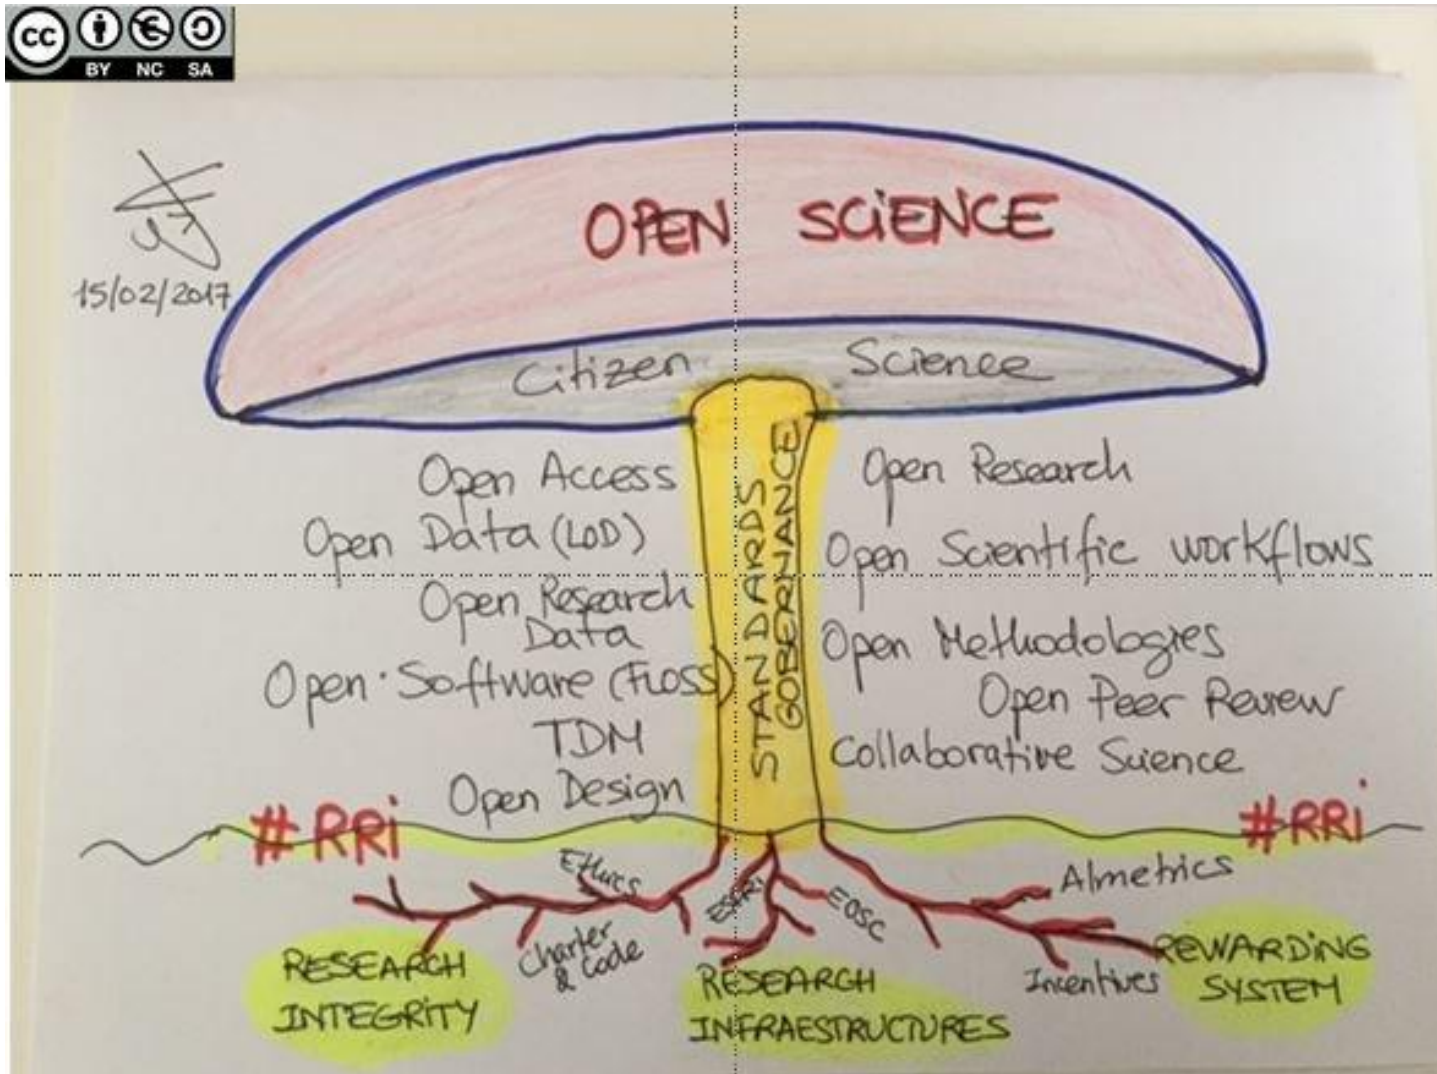 cc
BY NC SA
15/02/2017
OPEN SCiENCE
Citizen Science
Open Access
Open Data (LOD)
Open Research
Data
Open Software (FLOSS)
TDM
Open Design
STANDARDS
GOBERNANCE
Open Research
Open Scientific workflows
Open Methodologies
Open Peer Review
Collaborative Science
#RRi
#RRi
Ethics
Charter
& Code
ESFRi
EOSC
Almetrics
Incentives
RESEARCH
INTEGRiTY
RESEARCH
INFRAESTRUCTURES
REWARDiNG
SYSTEM